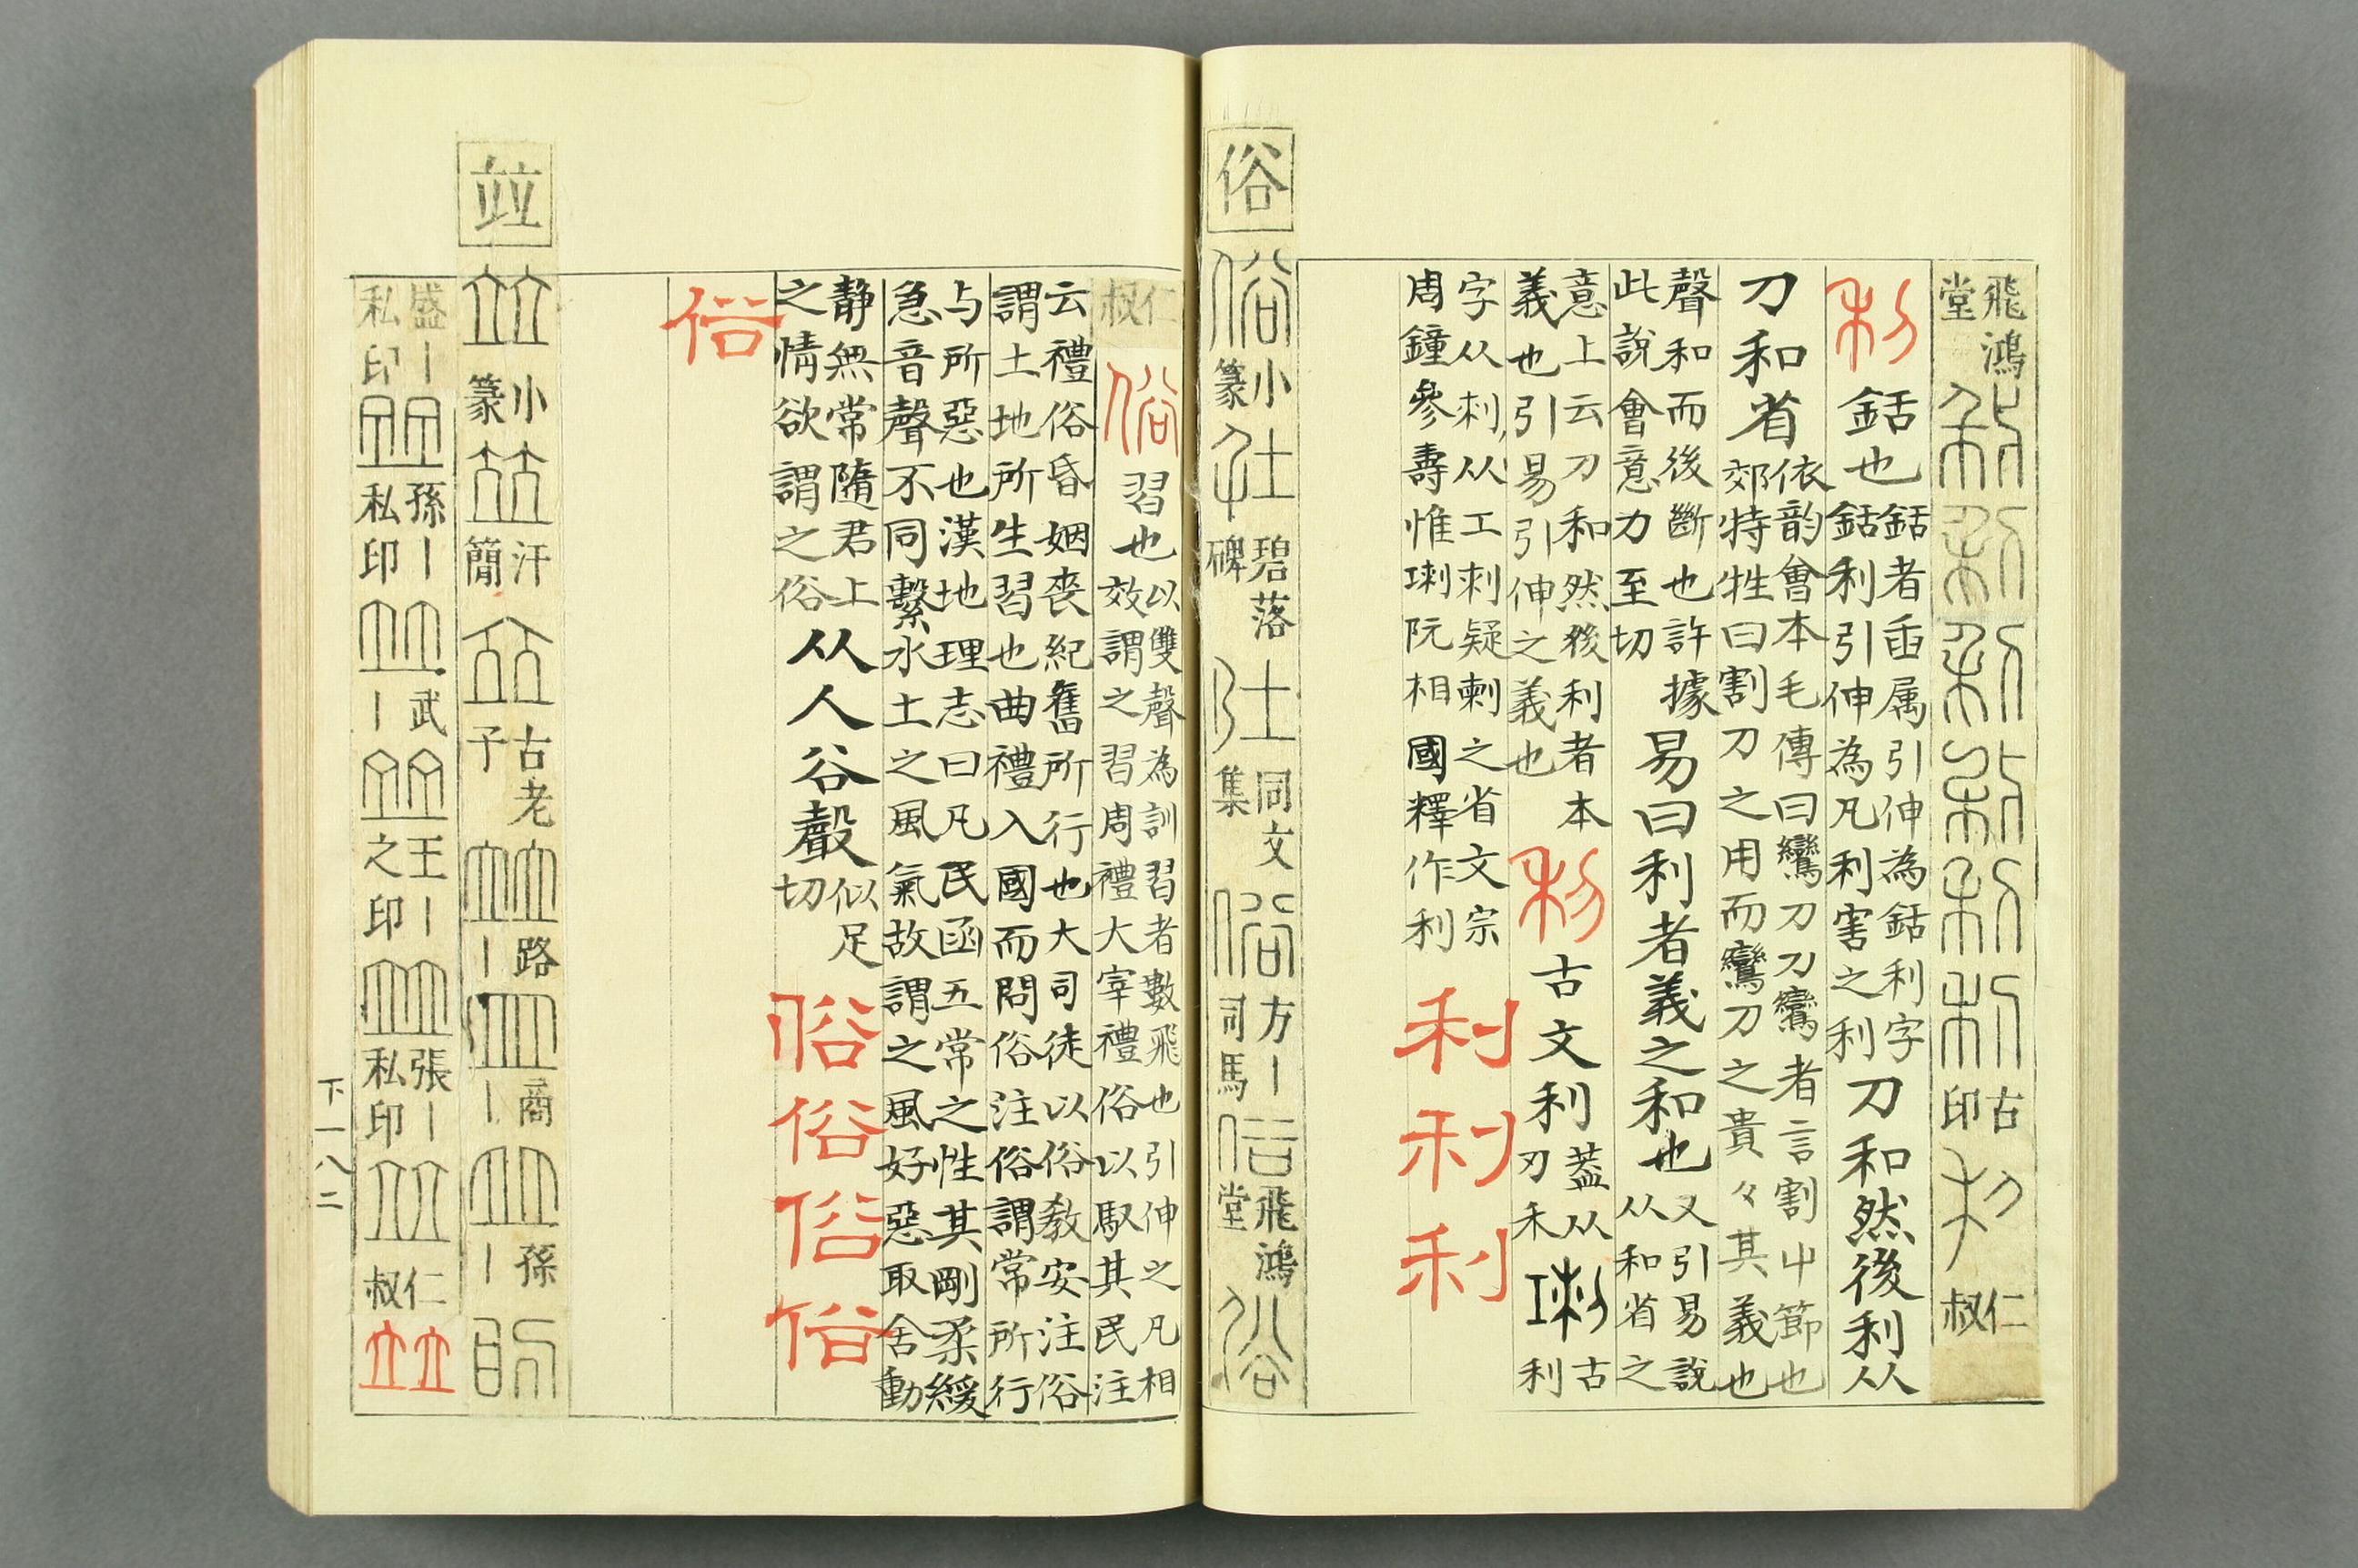 飛鴻堂 利 利 利 利 利 利 古印 利 仁叔
利 銛也 銛者臿属引伸為銛利字銛利引伸為凡利害之利 刀和然後利从
刀和省 依韵會本毛傳曰鸞刀刀鸞者言割中節也郊特牲曰割刀之用而鸞刀之貴々其義也
聲和而後斷也許據此說會意力至切 易曰利者義之和也 又引易說从和省之
意上云刀和然後利者本義也引易引伸之義也 利 古文利 蓋从刃禾 琍 古利
字从刺从工刺疑剌之省文宗周鐘參壽惟琍阮相國釋作利 利 利 利
俗 俗 小篆 碧落碑 同文集 俗 方丨司馬 俗 飛鴻堂 俗
仁叔 俗 習也 以雙聲為訓習者數飛也引伸之凡相效謂之習周禮大宰禮俗以馭其民注
云禮俗昏姻喪紀舊所行也大司徒以俗敎安注俗謂土地所生習也曲禮入國而問俗注俗謂常所行
与所惡也漢地理志曰凡民函五常之性其剛柔緩急音聲不同繫水土之風氣故謂之風好惡取舍動
静無常隨君上之情欲謂之俗 从人谷聲 似足切 俗 俗 俗 俗
俗
竝 竝 小篆 竝 汗簡 竝 古老子 竝 路丨 竝 商丨 竝 孫丨
盛丨私印 竝 孫丨私印 竝 武丨 竝 王丨之印 竝 張丨私印 竝 仁叔 竝
下一八二